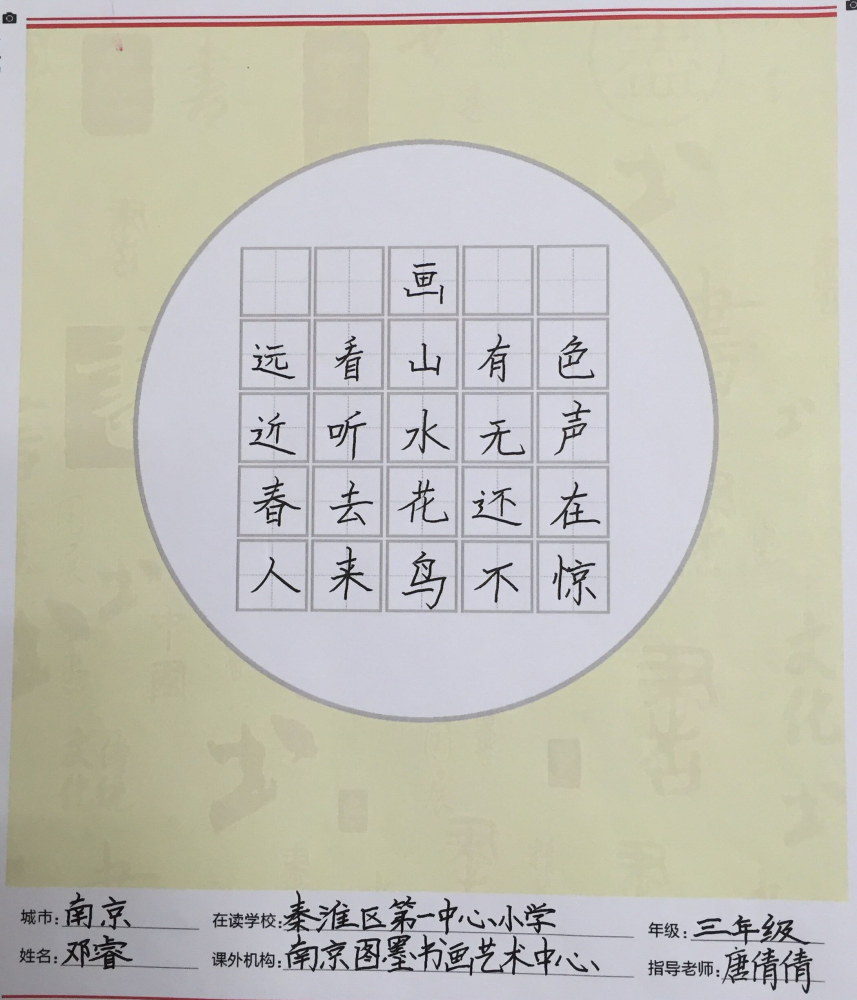 画
远看山有色
近听水无声
春去花还在
人来鸟不惊
城市:南京 在读学校:秦淮区第一中心小学 年级:三年级
姓名:邓睿 课外机构:南京图墨书画艺术中心 指导老师:唐倩倩